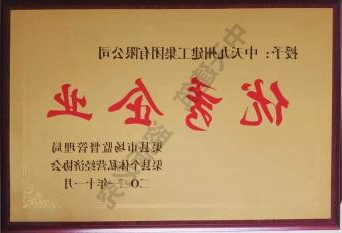 授予：中天九州建工集团有限公司
优秀企业
渠县市场监督管理局
渠县个体私营经济协会
二〇二一年十一月